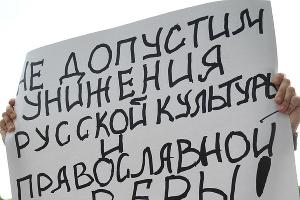 НЕ ДОПУСТИМ
УНИЖЕНИЯ
РУССКОЙ КУЛЬТУРЫ
И
ПРАВОСЛАВНОЙ
ВЕРЫ!